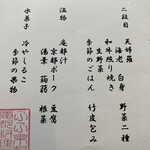 二段目
天婦羅
海老 白身 野菜二種
和牛照り焼き
生野菜 竹皮包み
季節のごはん
温物
庵都汁
京都ポーク 豆腐
湯葉 蒟蒻 根菜
水菓子
冷やしるこ
季節の果物